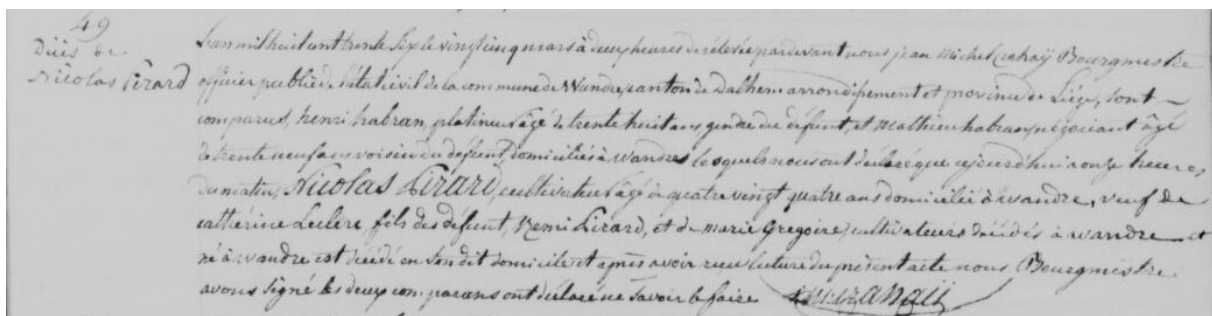 49
Décès de
Nicolas Pirard
L'an mil huit cent trente six le vingt cinq mars à deux heures de relevée pardevant nous jean Michel Bourgmestre
officier public de l'état civil de la commune de Wandre, canton de Dalhem arrondissement et province de Liége, sont
comparus, henri habran, platineur, âgé de trente huit ans gendre du défunt, et Mathieu habran, négociant âgé
de trente neuf ans voisin du défunt, domiciliés à wandre lesquels nous ont déclaré que aujourd'hui à onze heures
du matin, Nicolas Pirard, cultivateur, âgé de quatre vingt quatre ans domicilié à wandre, veuf de
cathérine Leclerc, fils des défunt, Remi Pirard, et de marie Gregoire, cultivateurs décédés à wandre et
né à wandre est décédé en son dit domicile et après avoir reçu lecture du présent acte nous Bourgmestre
avons signé les deux comparans ont déclaré ne savoir le faire